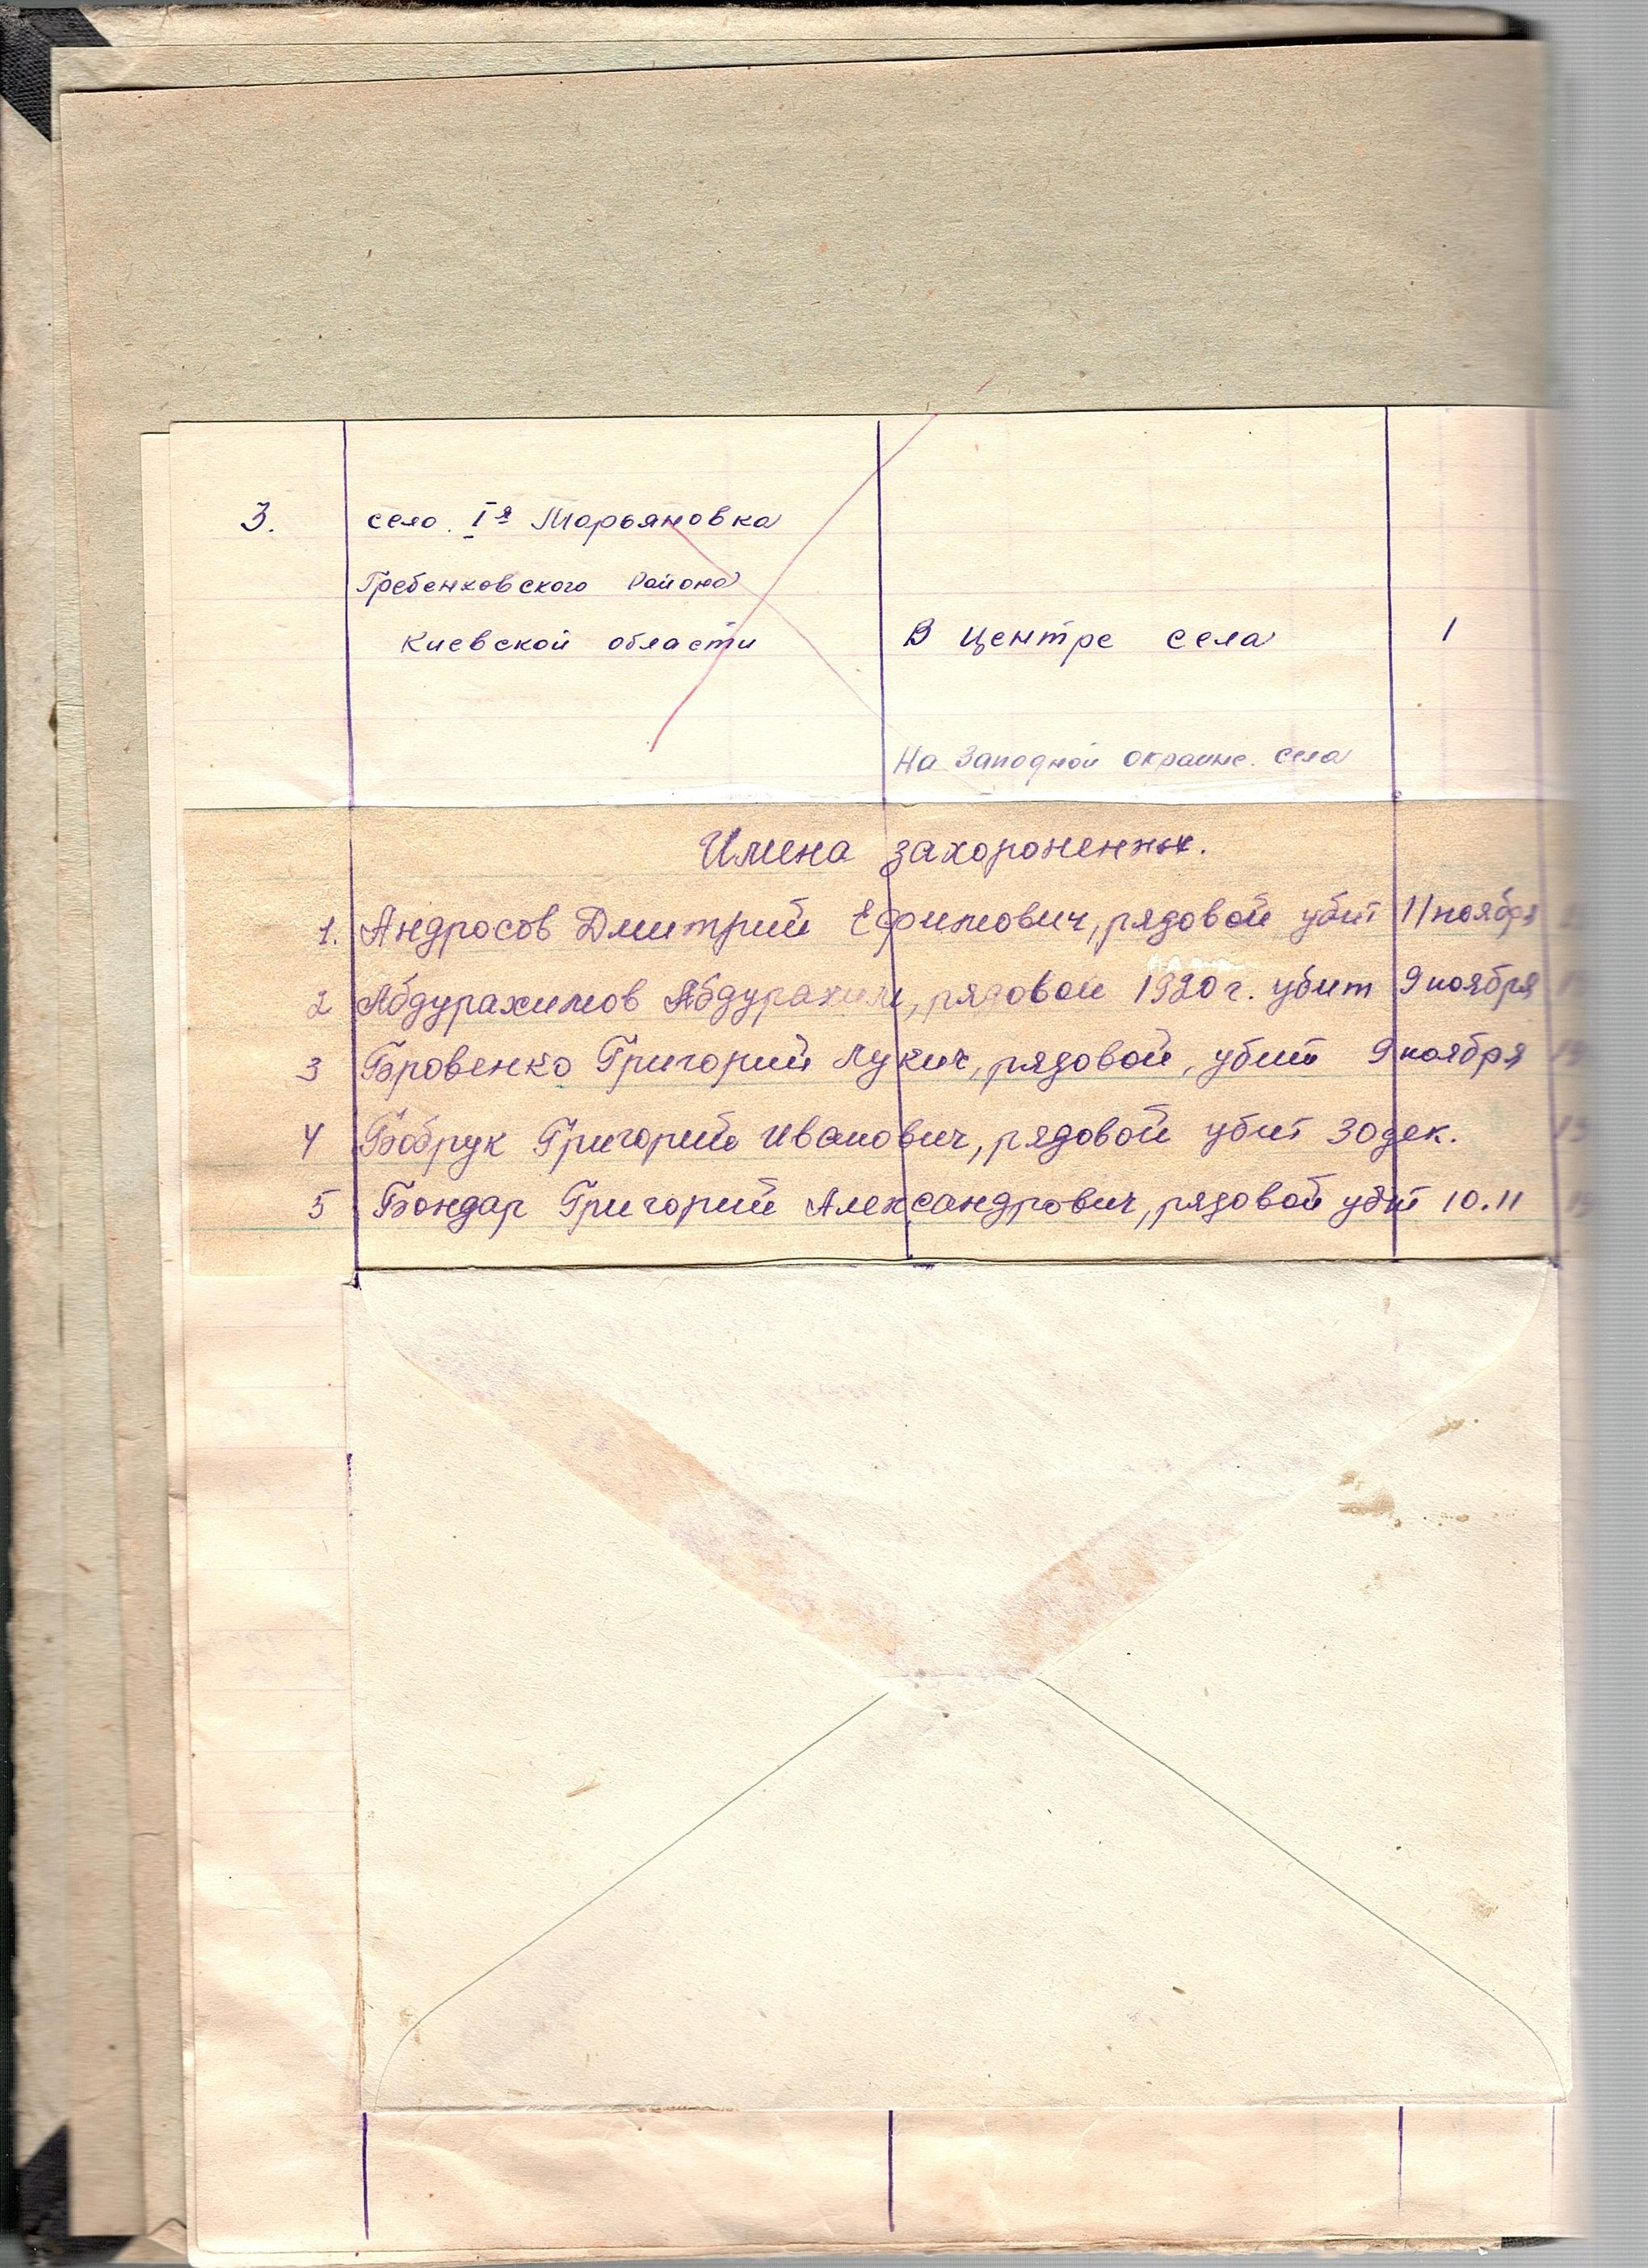 3. село. Iя Марьяновка
Гребенковского района
Киевской области В центре села 1
На Западной окраине. села
Имена захороненных.
1. Андросов Дмитрий Ефимович, рядовой убит 11 ноября
2 Абдурахимов Абдурахим, рядовой 1920 г. убит 9 ноября
3 Бровенко Григорий Лукич, рядовой, убит 9 ноября
4 Бобрук Григорий Иванович, рядовой убит 30 дек.
5 Бондар Григорий Александрович, рядовой убит 10.11